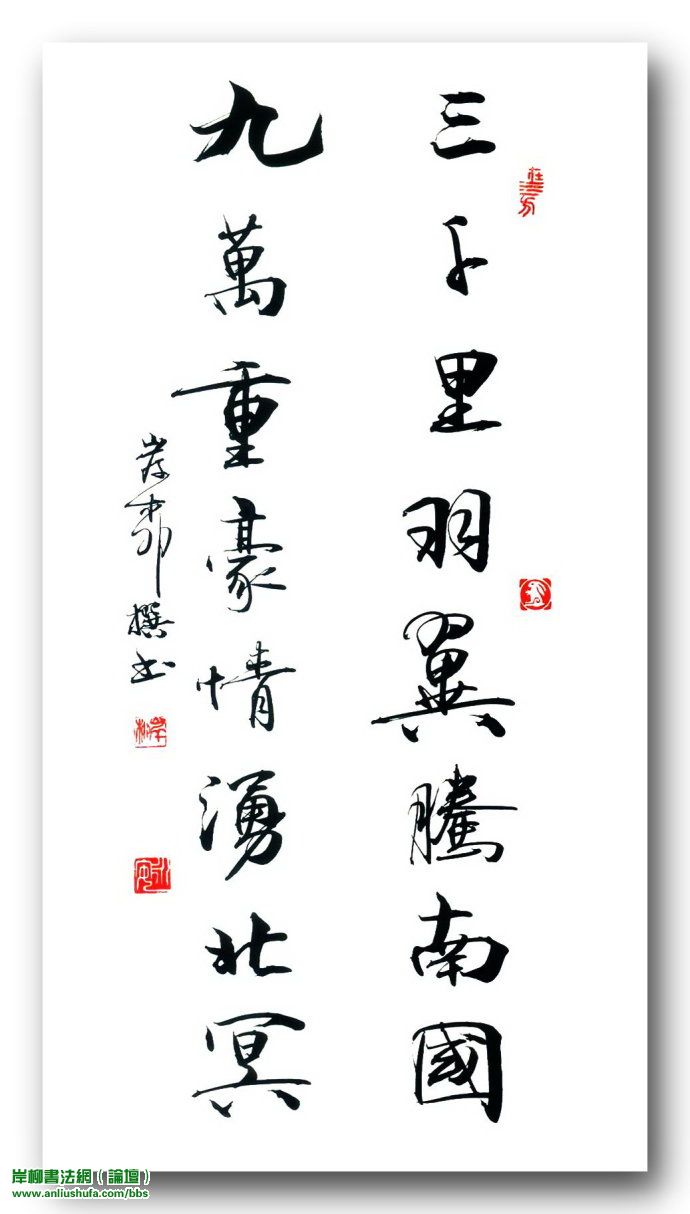 三千里羽翼騰南國
九萬重豪情湧北冥
岸柳撰書
岸柳書法網（論壇）
www.anliushufa.com/bbs